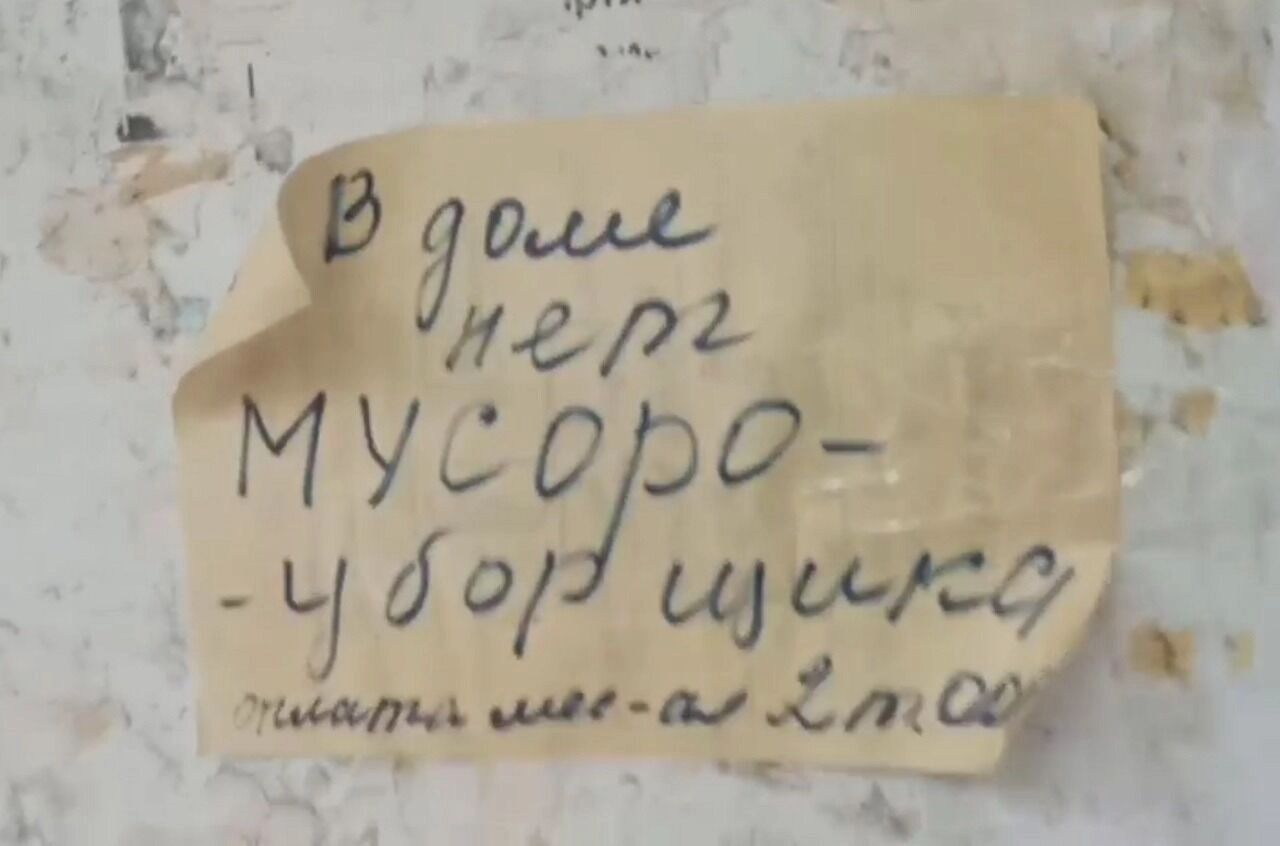 В доме
нет
МУСОРО-
-уборщика
оплата мес-ая 2т00